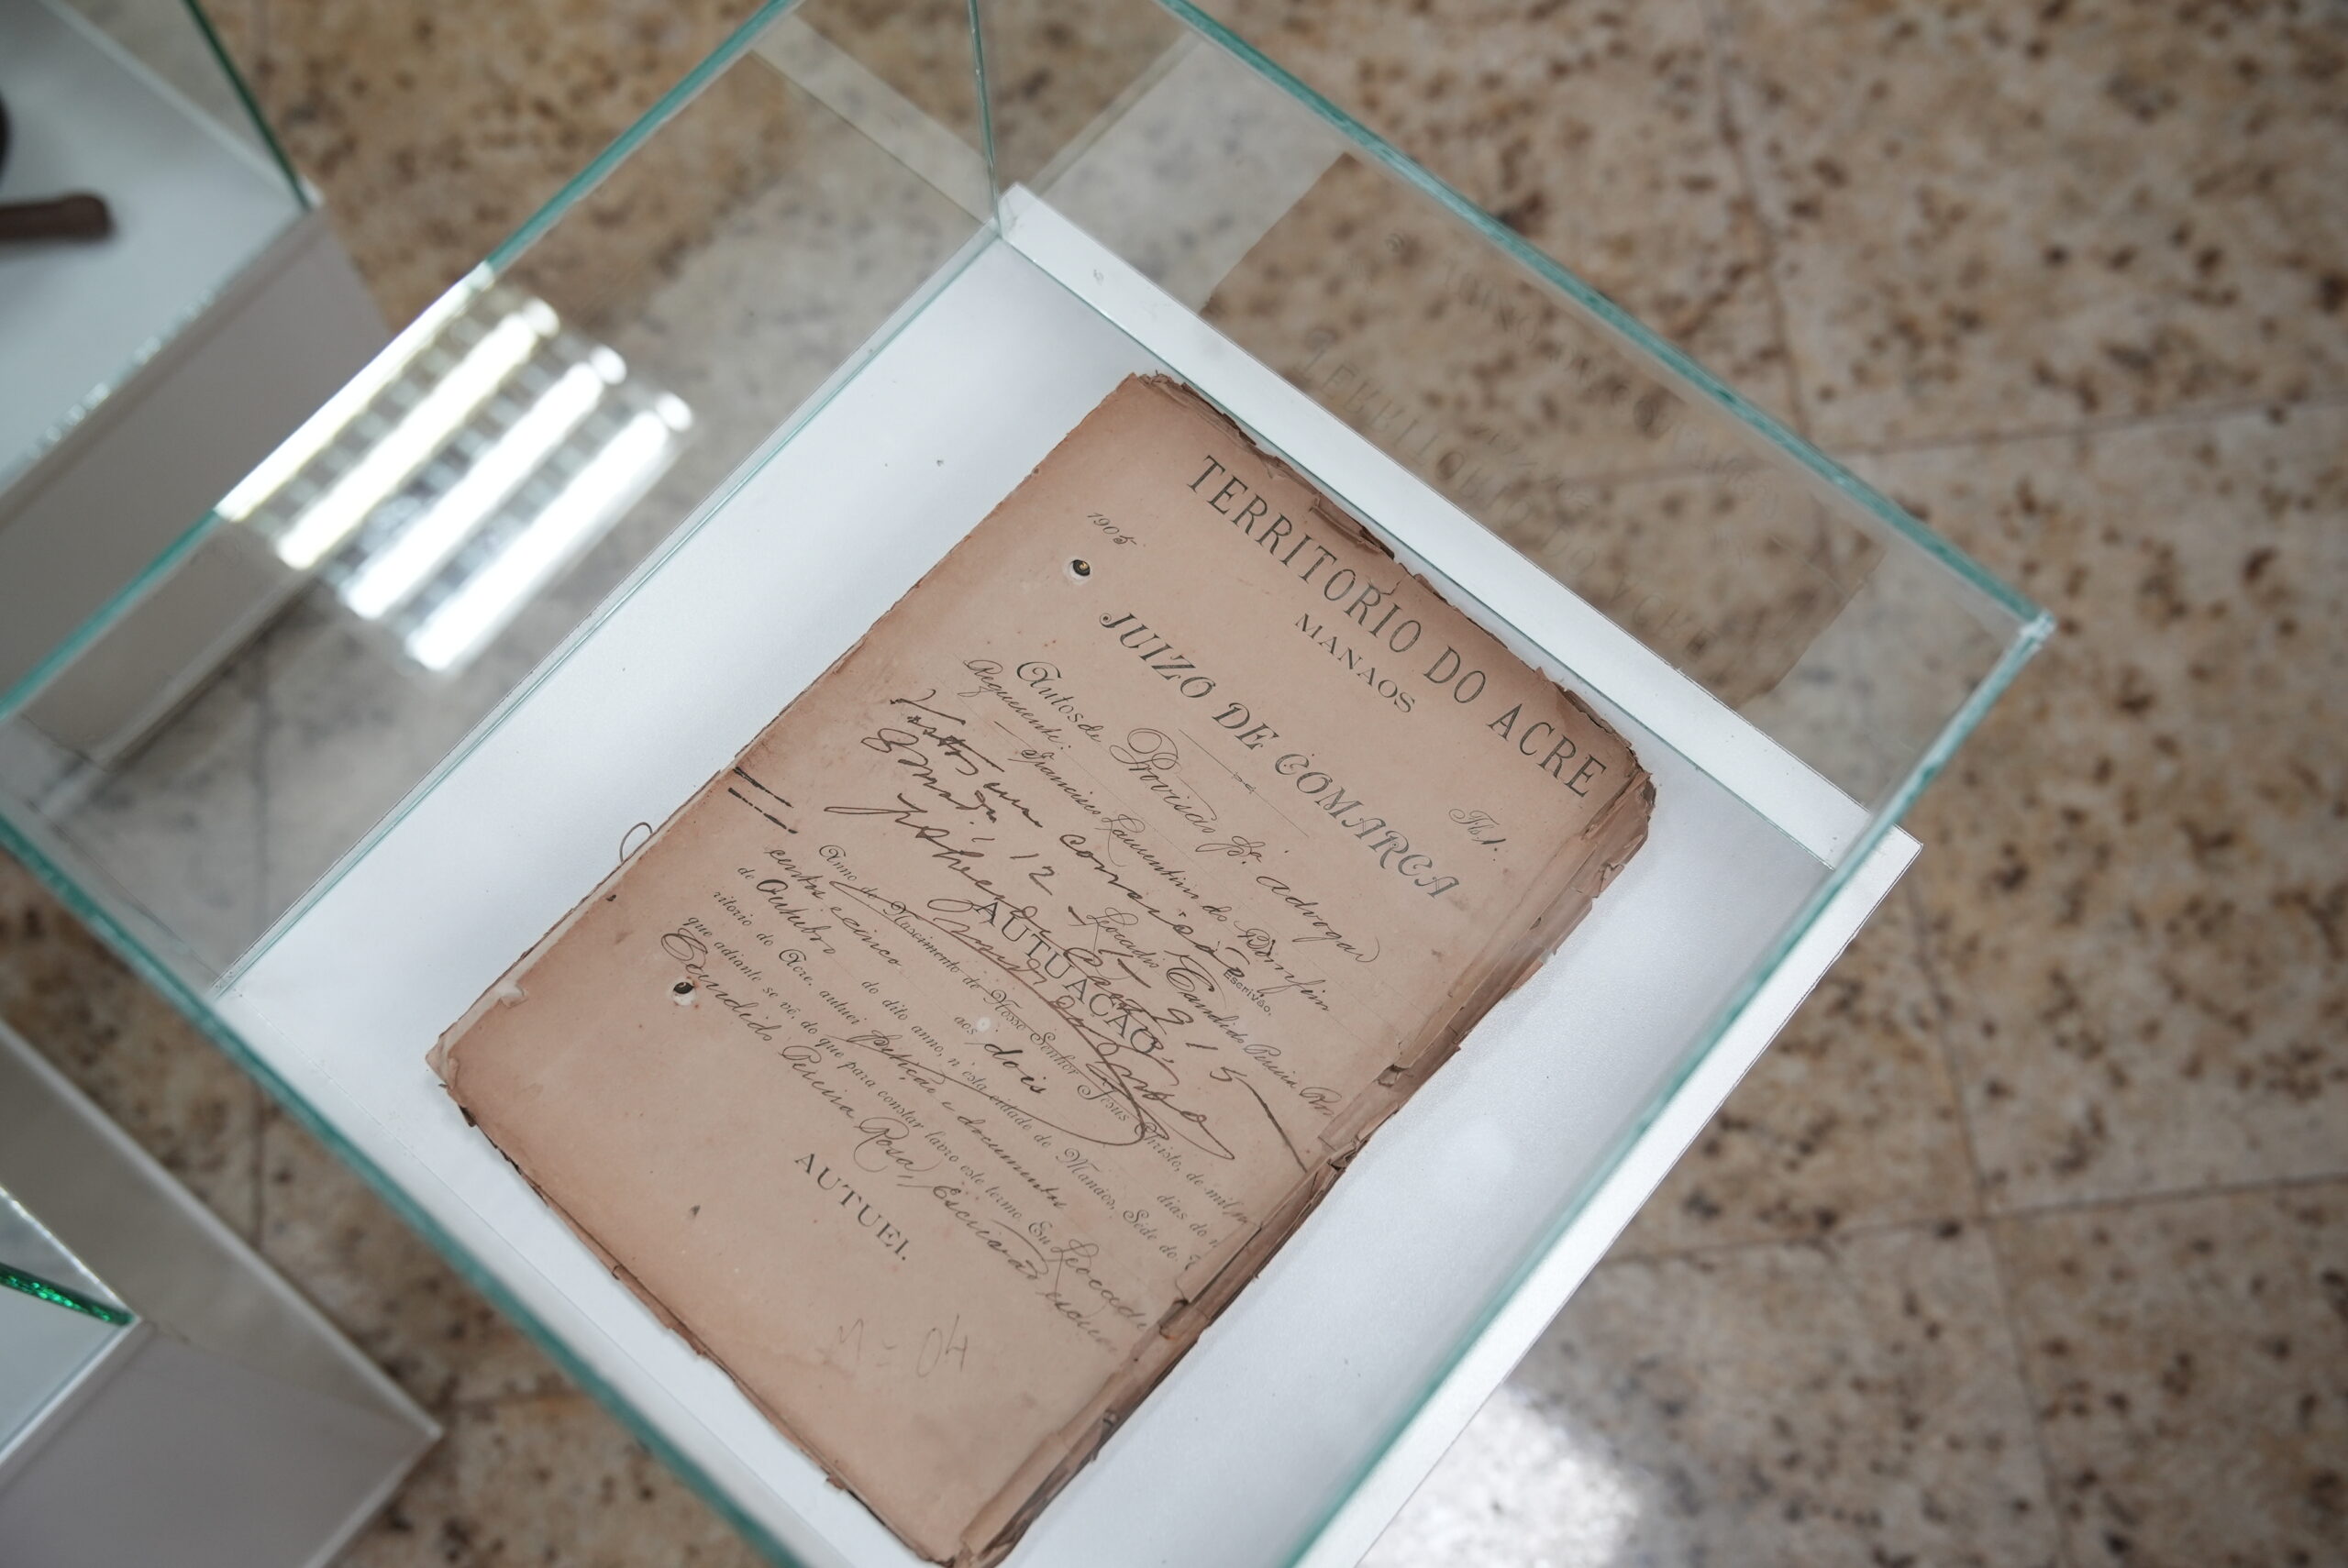 TERRITORIO DO ACRE
MANAOS
1905
Fls 1.
JUIZO DE COMARCA
Autos de Provisão pa. advogar
Requerente: Francisco Laurentino do Bomfim
Vistos em correição
12
Escrivão.
Leocadio Candido Pereira
1915
AUTUAÇÃO
Anno do Nascimento de Nosso Senhor Jesus Christo, de mil
centos e cinco aos dois dias do
de Outubro do dito anno, n'esta cidade de Manáos, Séde do
ritorio do Acre, autuei petição e documentos
que adiante se vê, do que para constar lavro este termo. Eu Leocadio
Candido Pereira Rosa, Escrivão
AUTUEI.
04